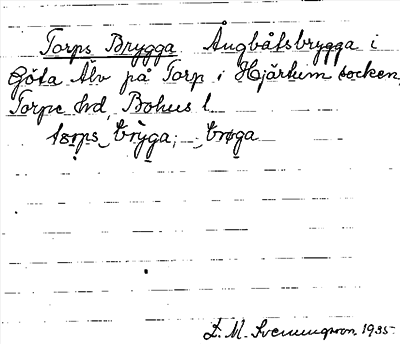 Torps Brygga Ångbåtsbrygga i
Göta Älv på Torp i Hjärtum socken,
Torpe hd, Bohus l.
tɔrps brỳga; brøga
L. M. Svenungsson 1935.